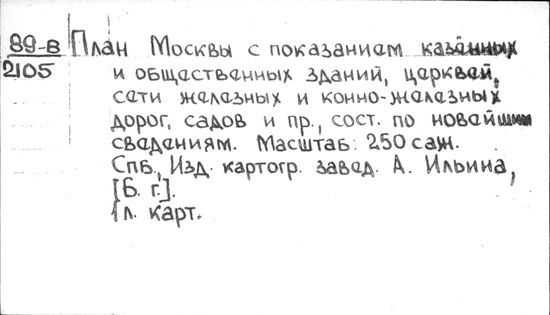 89-в План Москвы с показанием казённых
2105 и общественных зданий, церквей,
сети железных и конно-железных
дорог, садов и пр., сост. по новейшим
сведениям. Масштаб: 250 саж.
Спб., Изд. картогр. завед. А. Ильина,
[Б. г.].
1 л. карт.